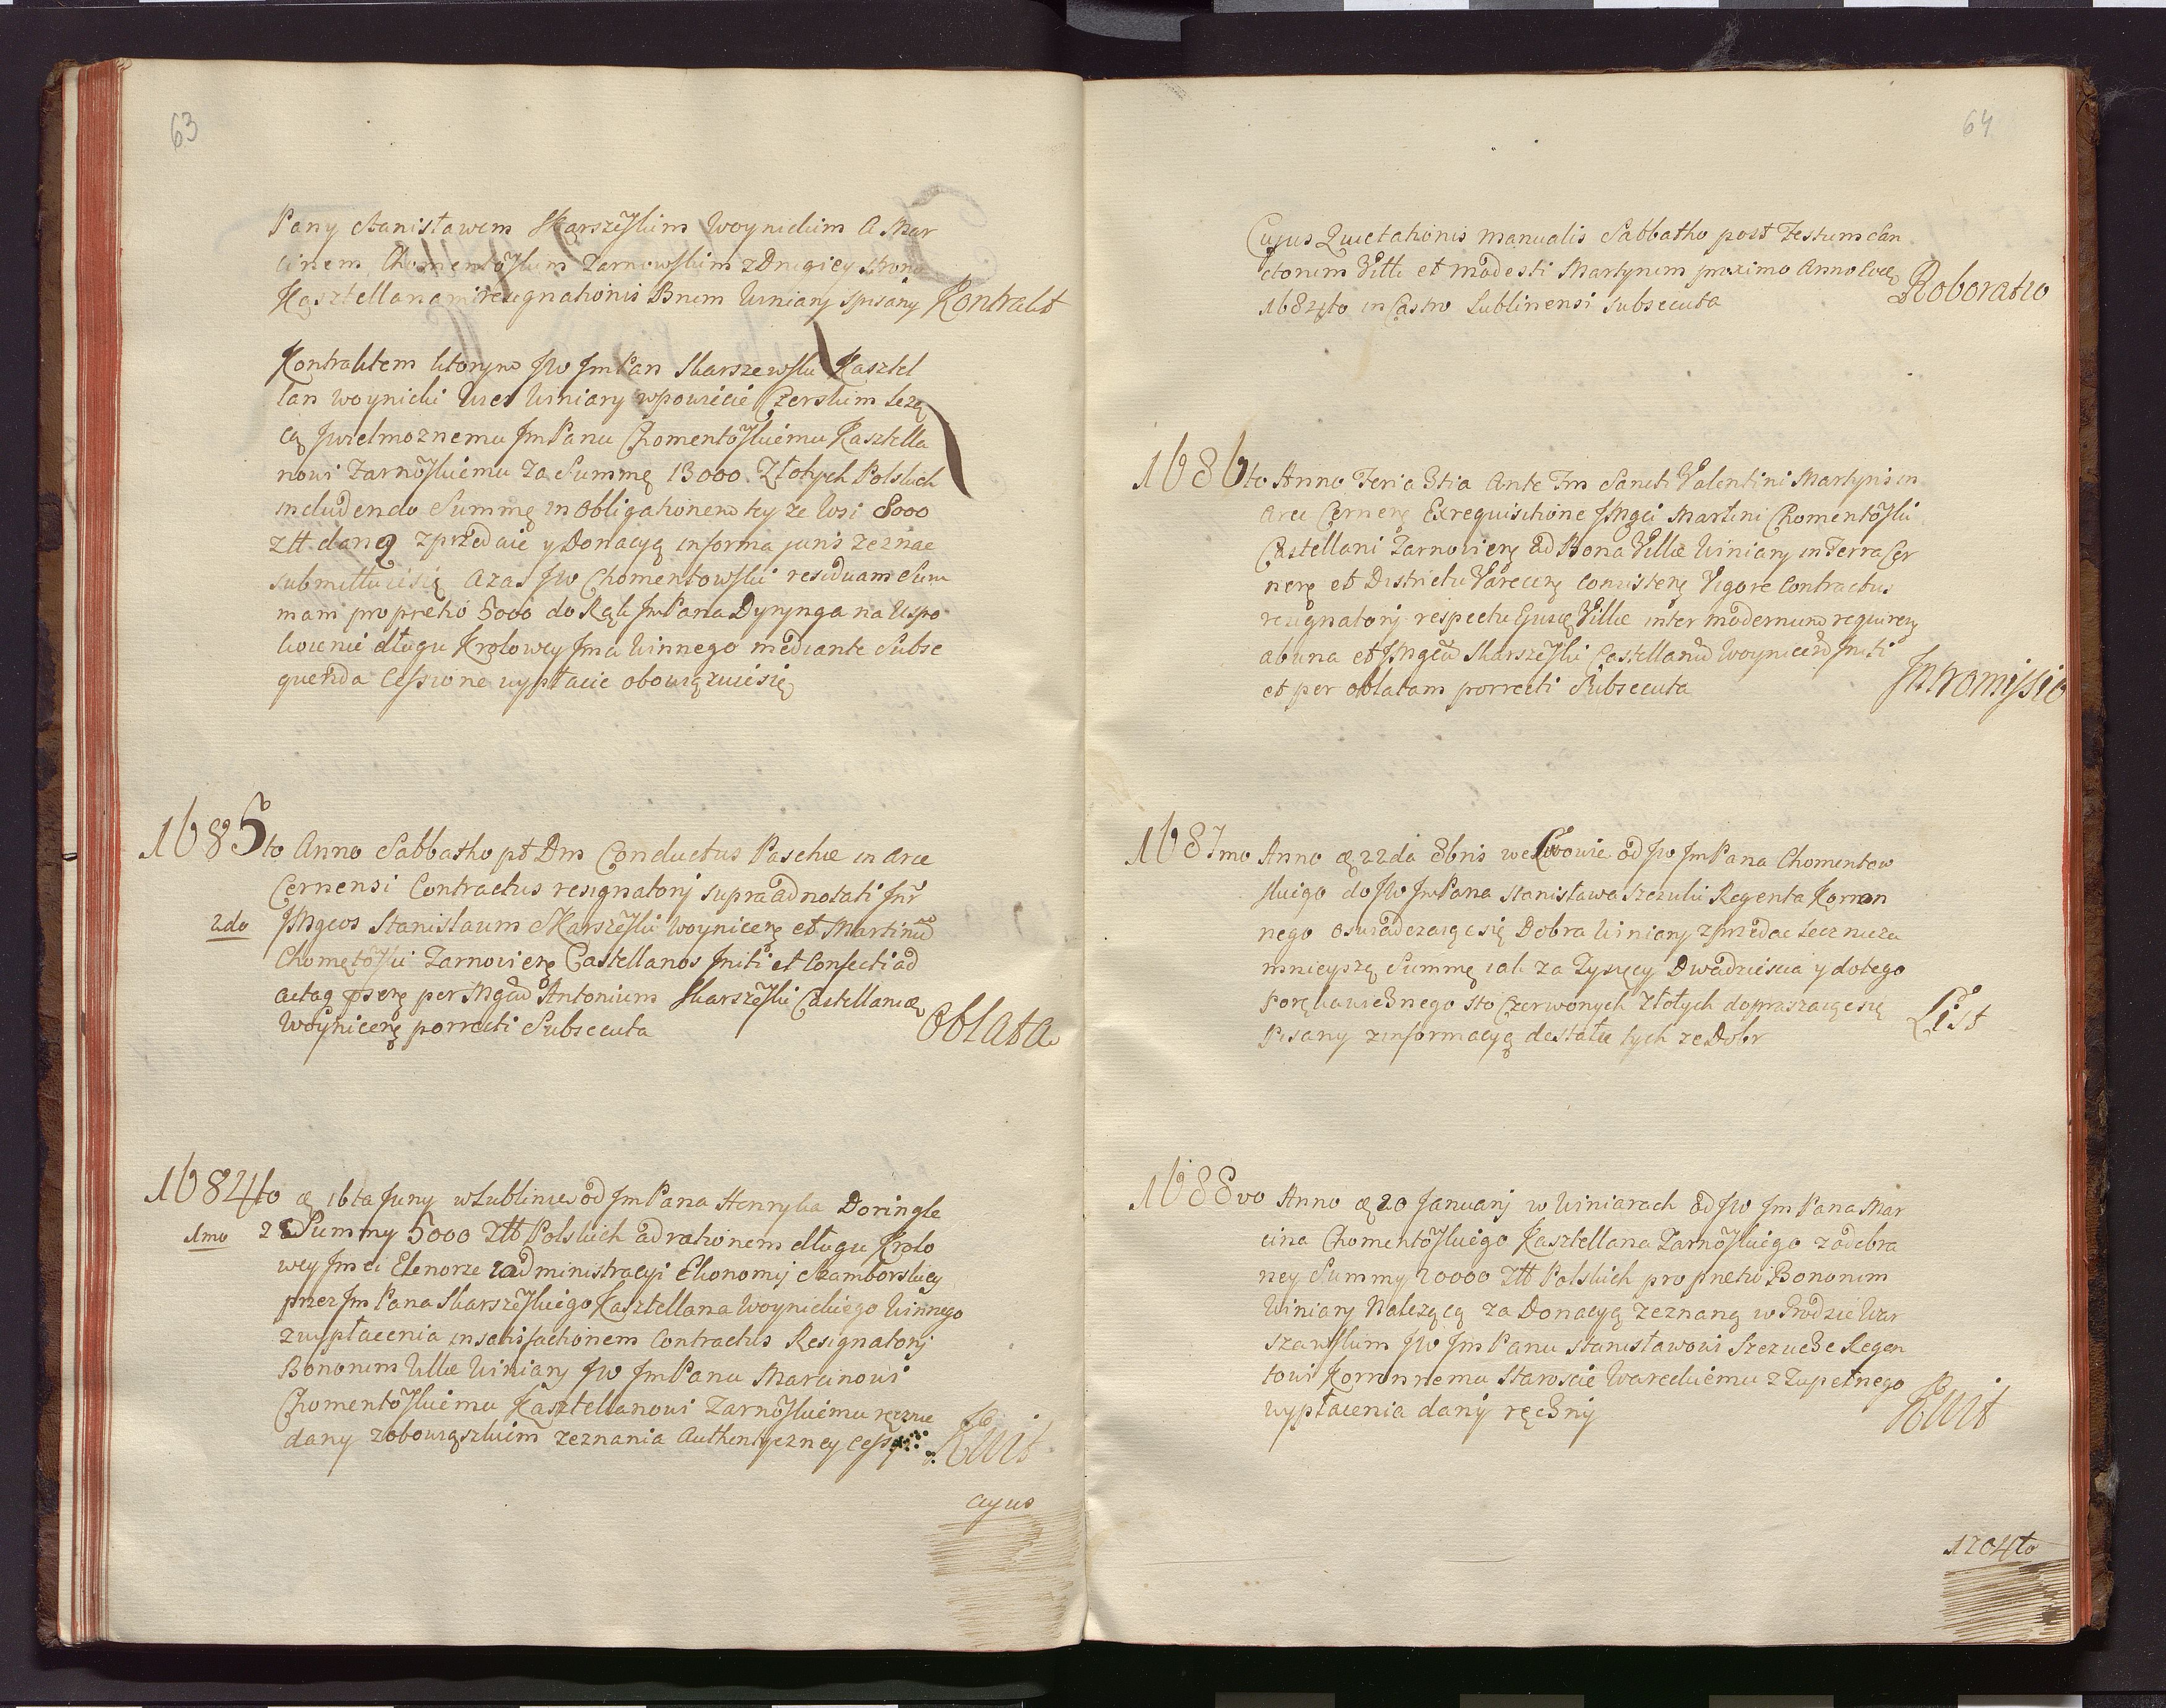 63
Pany Stanisławem Skarszewskim Woynickim A Mar
cinem Chomentowskim Zarnowskim z Drugiey strony
Kasztellanami resignationis Bnum Winiary spisany Kontrakt
Kontraktem ktorym JW JmPan Skarszewski Kasztel
lan Woynicki Wies Winiary w powiecie Czerskim leżą
cą Jwielmoznemu JmPanu Chomentoskiemu Kasztella
nowi Zarnoskiemu za Summę 13000 Złotych Polskich
includendo Summę in obligationem tey ze wsi 8000
złł daną zprzedaie y Donacyą in forma juris zeznac
submittuie się Aza JW Chomentowski residuam Sum
mam pro pretio 5000 do Rąk JmPana Dyrynga na Uspo
koienie długu Krolowey Jmci Winnego mediante Subse
quenda Cessione wypłacic obowiązuie się
1685to Anno Sabbatho pt Dm Conductus Paschæ in Arce
Cernensi Contractus resignatorij supra adnotati Intr
2do JMgcos Stanislaum Skarszeski Woynicen et Martinu
Chomętoski Zarnovien Castellanos Initi et Confecti ad
acta psen per Mgcu Antonium Skarszeski Castellanicæ
Woynicen porrecti Subsecuta Oblata
1684to æ 16ta Juny w Lublinie od JmPana Henryka Doringk
1mo z Summy 5000 Złł Polskich ad rationem długu Krolo
wey Jmci Elenorze z administracyi Ekonomij Samborskiey
przez JmPana Skarszeskiego Kasztellana Woynickiego Winnego
z wypłacenia in satisfactionem Contractus Resignatorij
Bonorum Villæ Winiary JW JmPanu Marcinowi
Chomentoskiemu Kasztellanowi Zarnoskiemu ręcznie
dany z obowiązkiem zeznania Authentyczney cessyi Kwit
cujus
64
Cujus Quietationis manualis Sabbatho post Festum San
ctorum Viti et Modesti Martyrum proximo Anno Eod
1684to in Castro Lublinensi subsecuta Roboratio
1686to Anno Feria 3tia Ante Fm Sancti Valentini Martyris in
Arce Cernen Ex requisitione JMgci Martini Chomentoski
Castellani Zarnovien ad Bona Villæ Winiary in Terra Cer
nen et Districtu Varecen consisten Vigore Contractus
resignatorij respectu Ejusd Villæ inter modernum requiren
ab una et JMgcu Skarszeski Castellanu Woynicen Initi
et per oblatam porrecti Subsecuta Intromissio
1687mo Anno æ 22da 8bris we Lwowie od JW JmPana Chomentow
skiego do JW JmPana Stanisława Szczuki Regenta Korron
nego oswiadczaiąc się Dobra Winiary zprzedac lecz nieza
mnieyszą Summę iak za Tysięcy Dwadziescia y do tego
Porękawicznego sto Czerwonych Złotych dopraszaiąc się
Pisany z informacyą de statu tych ze Dobr List
1688vo Anno æ 20 Januarij w Winiarach od JW JmPana Mar
cina Chomentoskiego Kasztellana Zarnoskiego z odebra
ney Summy 20000 Złł Polskich pro pretio Bonorum
Winiary Nalezącą za Donacyą zeznaną w Grodzie War
szawskim JW JmPanu Stanisławowi Szczuce Regen
towi Korronnemu Staroscie Wareckiemu z Zupełnego
wypłacenia dany ręczny Kwit
1704to